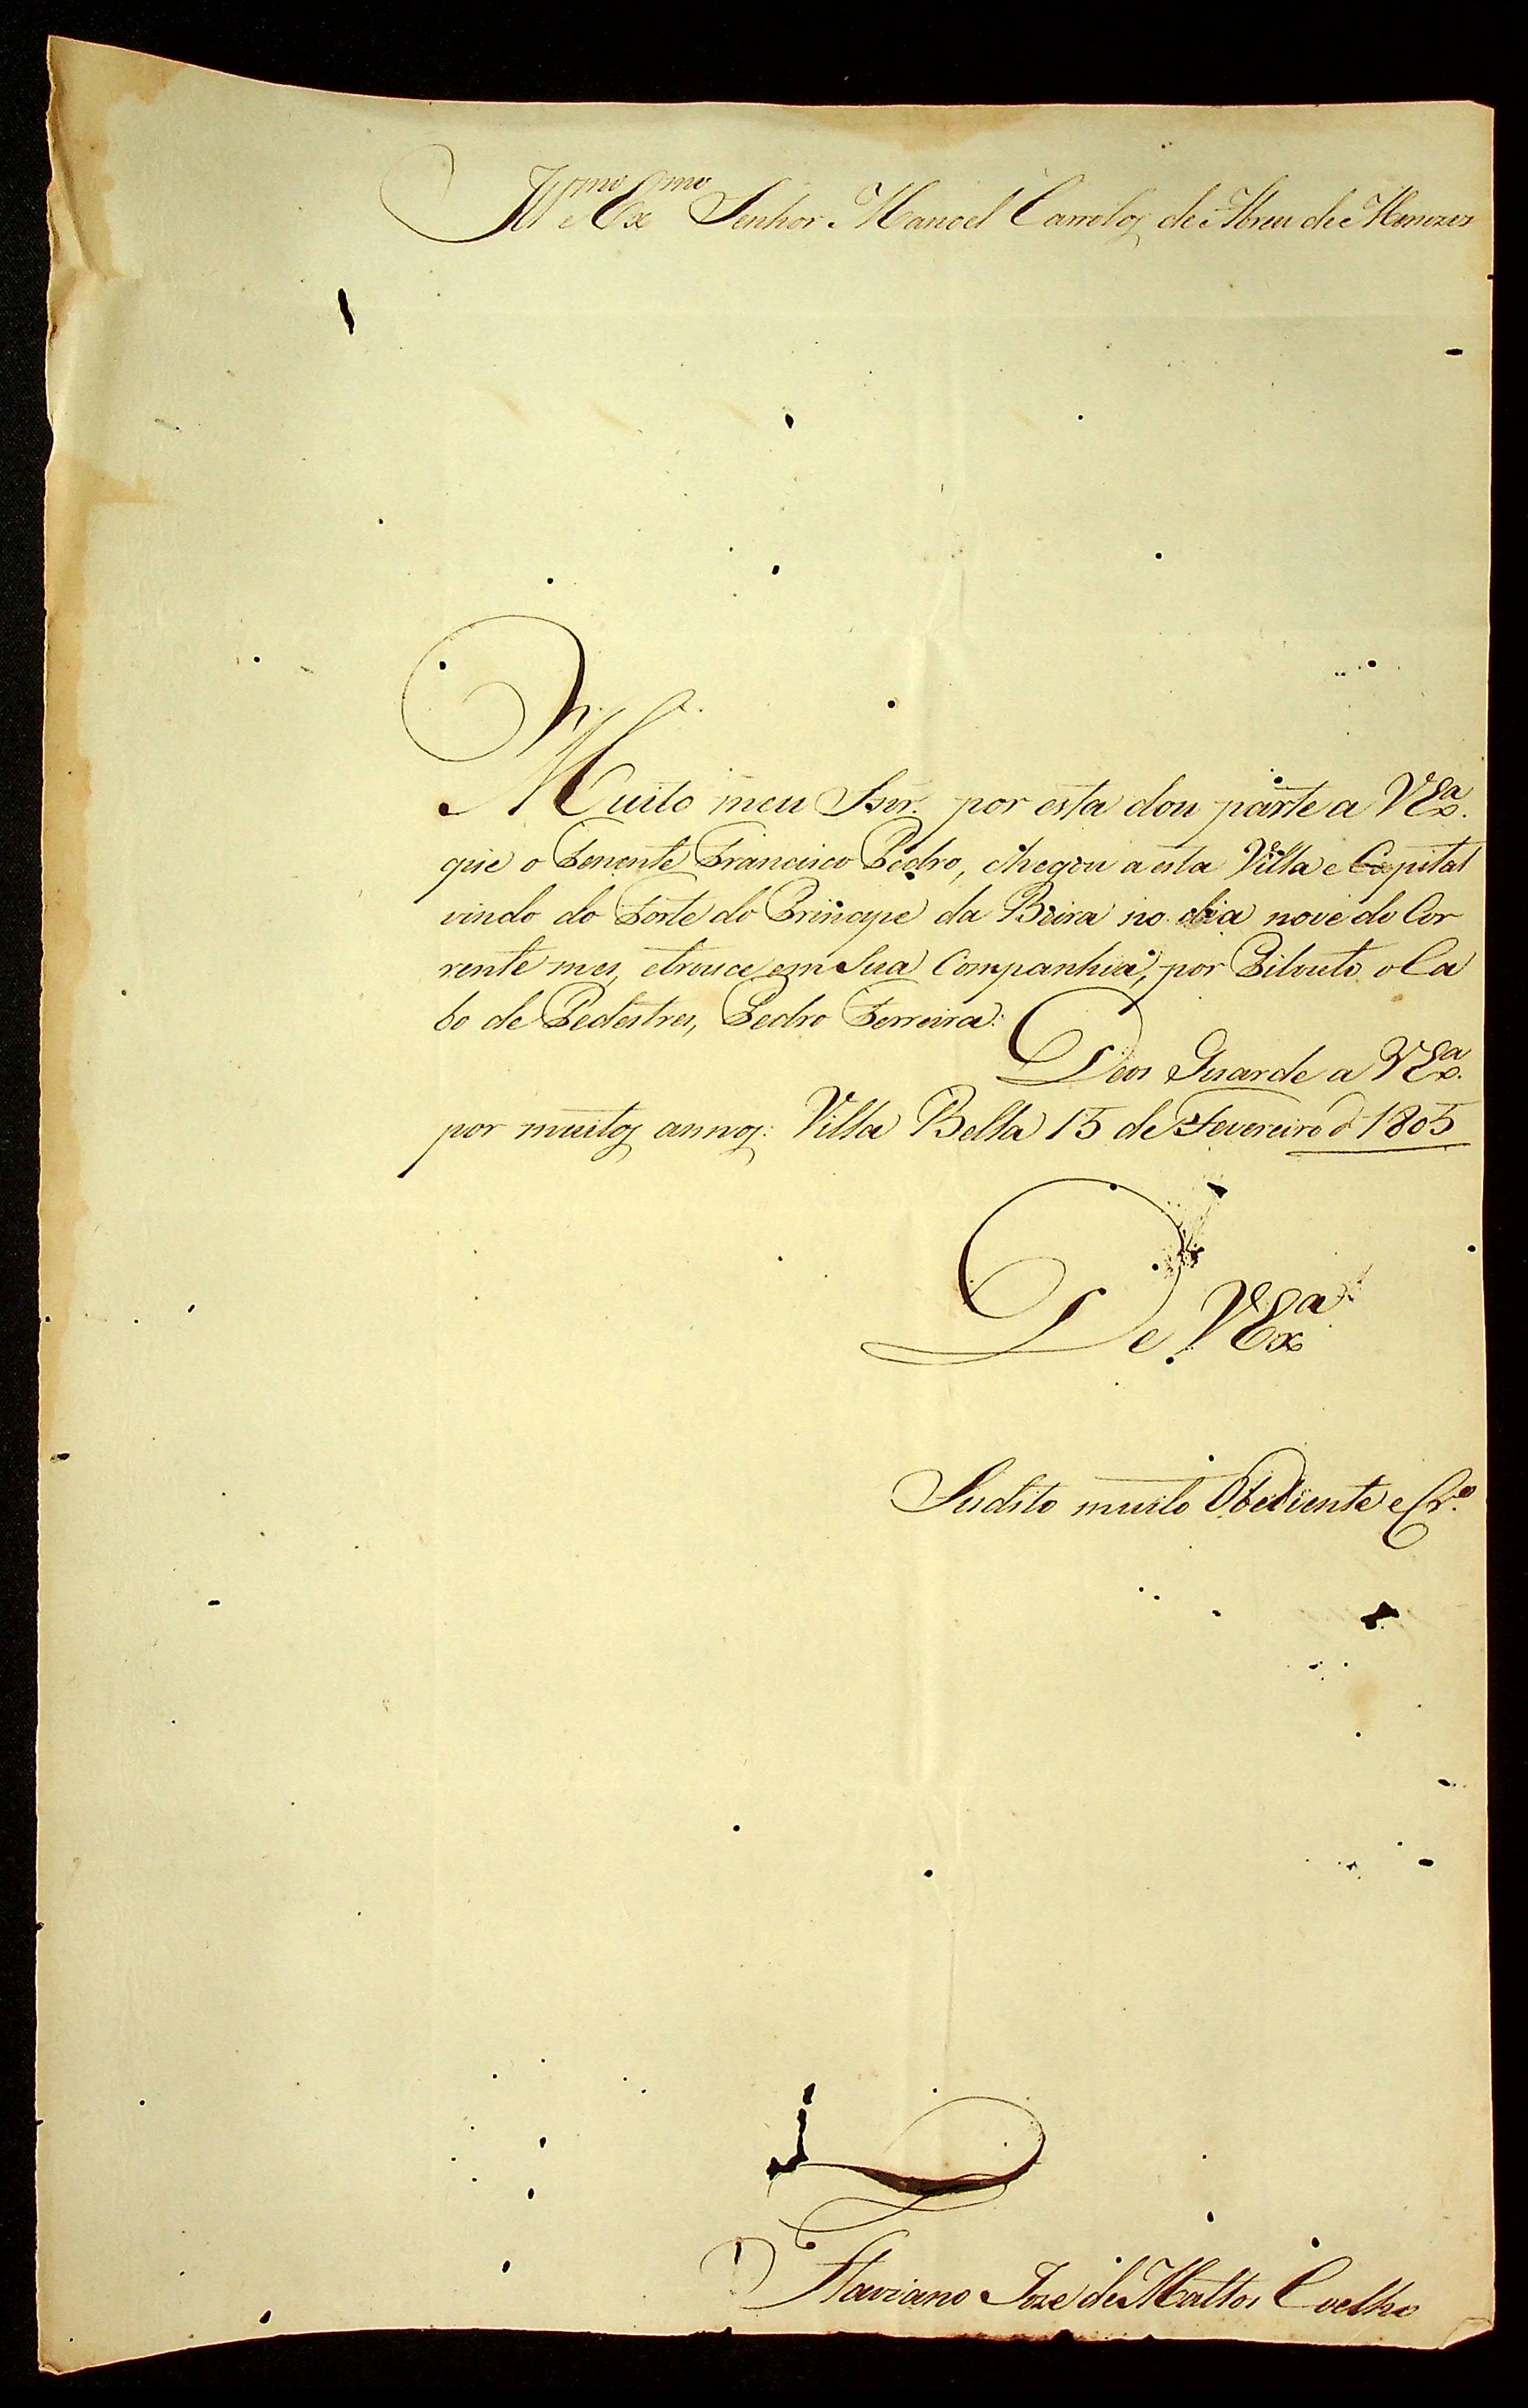 Ill.mo Ex.mo Senhor Manoel Carrolos de Abreu de Menezes
Muito meu Snr. por esta dou parte a VEx.a
que o Tenente Francisco Pedro, chegou a esta Villa e Capital
vindo do Forte do Principe da Beira no dia nove do Cor
rente mes, etrouce em Sua Companhia, por Pilouto o Ca
bo de Pedestres, Pedro Ferreira.
Deos Guarde a VEx.a
por muitos annos: Villa Bella 15 de Fevereiro d 1805
De VEx.a
Sudito muito Obediente e Cr.o
Flaviano Joze de Mattos Coelho